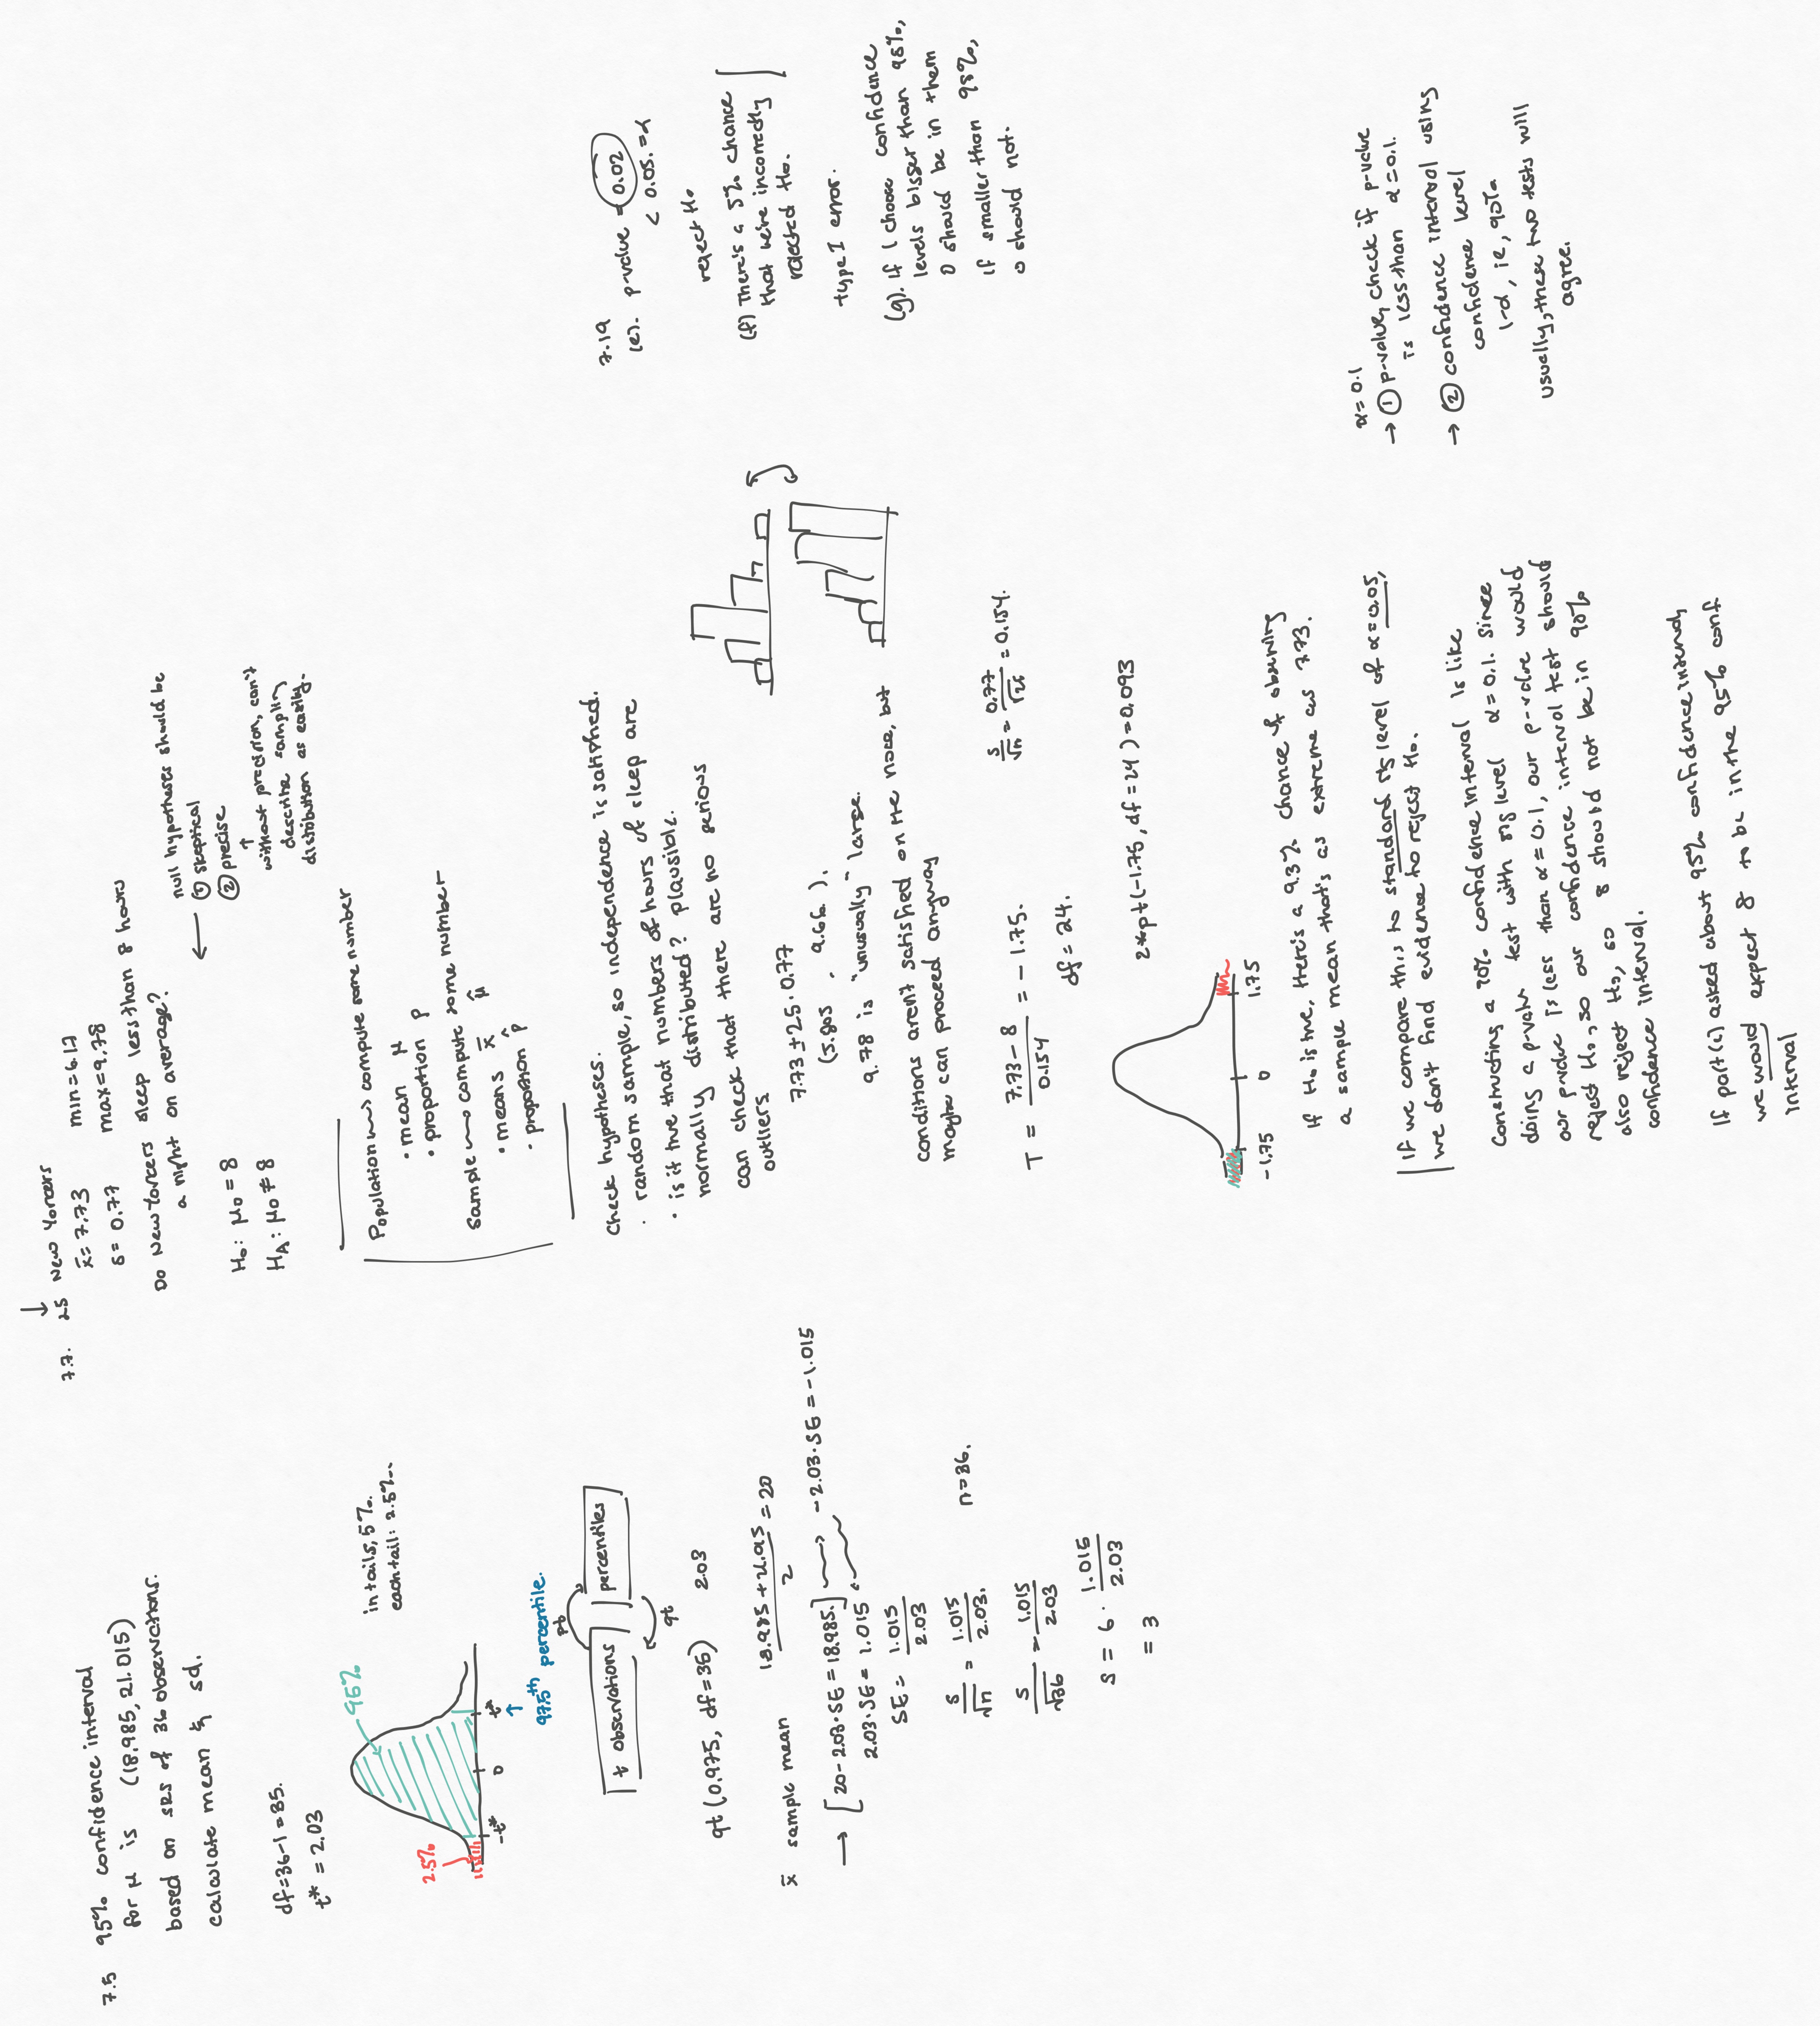 7.5 95% confidence interval
for μ is (18.985, 21.015)
based on SRS of 36 observations.
calculate mean & sd.
df=36-1=35.
t* = 2.03
95%
in tails, 5%.
each tail: 2.5%.
2.5%
-t* 0 t*
97.5th percentile.
pt
t observations percentiles
qt
qt(0.975, df=35) 2.03
x̄ sample mean (18.985+21.015)/2 = 20
→ [20-2.03·SE=18.985.] → -2.03·SE=-1.015
2.03·SE= 1.015
SE= 1.015/2.03
s/√n = 1.015/2.03. n=36.
s/√36 = 1.015/2.03
s = 6 · 1.015/2.03
= 3
7.7. 25 New Yorkers
x̄= 7.73 min=6.17
s= 0.77 max=9.78
Do New Yorkers sleep less than 8 hours
a night on average?
H₀: μ₀ = 8
H_A: μ₀ ≠ 8
← null hypotheses should be
① skeptical
② precise
↑
without precision, can't
describe sampling
distribution as easily.
Population → compute some number
• mean μ
• proportion p
Sample → compute some number
• means x̄ μ̂
• proportion p̂
Check hypotheses.
· random sample, so independence is satisfied.
· is it true that numbers of hours of sleep are
normally distributed? plausible.
can check that there are no serious
outliers
7.73 ± 2.5·0.77
(5.805, 9.66).
9.78 is "unusually" large.
conditions aren't satisfied on the nose, but
maybe can proceed anyway
T = (7.73-8)/0.154 = -1.75.
s/√n = 0.77/√25 = 0.154.
df = 24.
2*pt(-1.75, df=24)=0.093
-1.75 0 1.75
If H₀ is true, there's a 9.3% chance of observing
a sample mean that's as extreme as 7.73.
If we compare this to standard sig level of α=0.05,
we don't find evidence to reject H₀.
Constructing a 90% confidence interval is like
doing a p-value test with sig level α=0.1. Since
our p-value is less than α=0.1, our p-value would
reject H₀, so our confidence interval test should
also reject H₀, so 8 should not be in 90%
confidence interval.
If part (e) asked about 95% confidence interval,
we would expect 8 to be in the 95% conf
interval
7.19
(e). p-value = 0.02
< 0.05.=α
reject H₀
(f) There's a 5% chance
that we're incorrectly
rejected H₀.
type I error.
(g). If I choose confidence
levels bigger than 98%,
0 should be in them
if smaller than 98%,
0 should not.
α=0.1
→ ① p-value, check if p-value
is less than α=0.1.
→ ② confidence interval using
confidence level
1-α, ie, 90%
usually, these two tests will
agree.